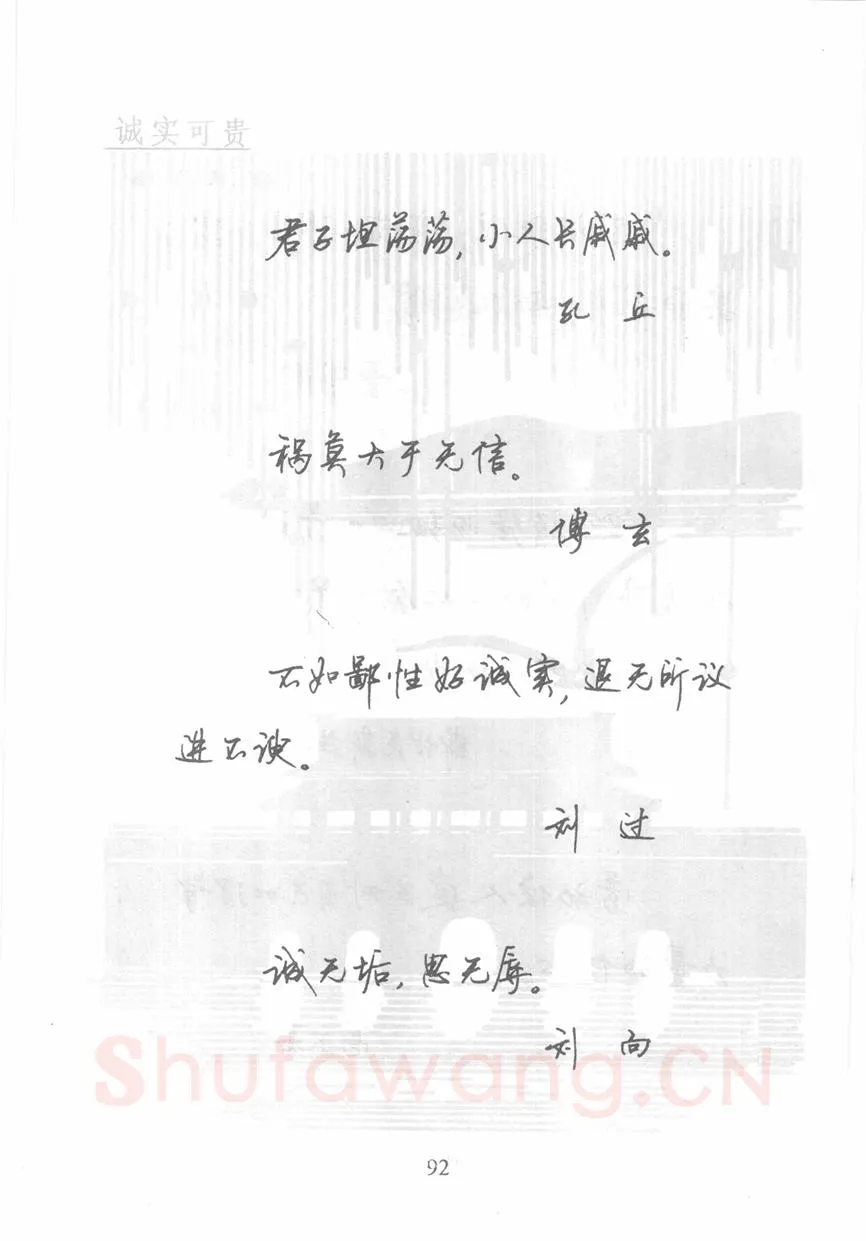 诚实可贵
君子坦荡荡,小人长戚戚。
孔 丘
祸莫大于无信。
傅 玄
不如鄙性好诚实,退无所议
进不谀。
刘 过
诚无垢,思无辱。
刘 向
Shufawang.CN
92